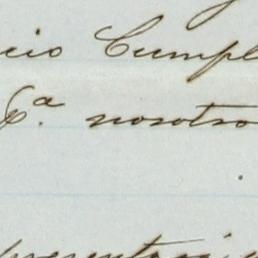 cio Cumpl
C.ª nosotro
presentaci